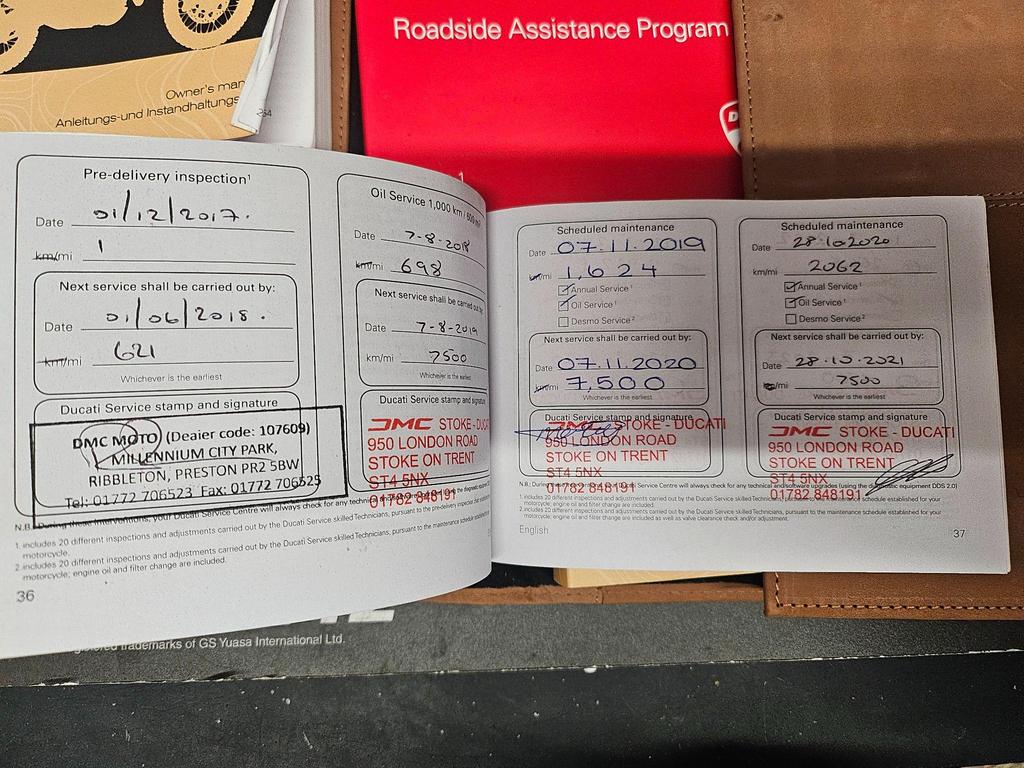 Owner's man
Anleitungs-und Instandhaltungs
Roadside Assistance Program
Pre-delivery inspection¹
Date 01/12/2017.
km/mi 1
Next service shall be carried out by:
Date 01/06/2018.
km/mi 621
Whichever is the earliest
Ducati Service stamp and signature
DMC MOTO (Dealer code: 107609)
MILLENNIUM CITY PARK,
RIBBLETON, PRESTON PR2 5BW
Tel: 01772 706523 Fax: 01772 706525
Oil Service 1,000 km / 600 mi
Date 7-8-2018
km/mi 698
Next service shall be carried
Date 7-8-2019
km/mi 7500
Whichever is the earliest
Ducati Service stamp and signature
DMC STOKE - DUC
950 LONDON ROAD
STOKE ON TRENT
ST4 5NX
01782 848191
N.B.: During these interventions, your Ducati Service Centre will always check for any technical
1. includes 20 different inspections and adjustments carried out by the Ducati Service skilled Technicians, pursuant to the pre-delivery inspection
motorcycle.
2. includes 20 different inspections and adjustments carried out by the Ducati Service skilled Technicians, pursuant to the maintenance schedule
motorcycle; engine oil and filter change are included.
36
Scheduled maintenance
Date 07.11.2019
km/mi 1,624
Annual Service¹
Oil Service¹
Desmo Service²
Next service shall be carried out by:
Date 07.11.2020
km/mi 7,500
Whichever is the earliest
Ducati Service stamp and signature
DMC STOKE - DUCATI
950 LONDON ROAD
STOKE ON TRENT
ST4 5NX
01782 848191
Scheduled maintenance
Date 28.10.2020
km/mi 2062
Annual Service¹
Oil Service¹
Desmo Service²
Next service shall be carried out by:
Date 28.10.2021
km/mi 7500
Whichever is the earliest
Ducati Service stamp and signature
DMC STOKE - DUCATI
950 LONDON ROAD
STOKE ON TRENT
ST4 5NX
01782 848191
N.B.: During these interventions, your Ducati Service Centre will always check for any technical and/or software upgrades (using the diagnostic equipment DDS 2.0)
1. includes 20 different inspections and adjustments carried out by the Ducati Service skilled Technicians, pursuant to the maintenance schedule established for your
motorcycle; engine oil and filter change are included.
2. includes 20 different inspections and adjustments carried out by the Ducati Service skilled Technicians, pursuant to the maintenance schedule established for your
motorcycle; engine oil and filter change are included as well as valve clearance check and/or adjustment.
English
37
trademarks of GS Yuasa International Ltd.